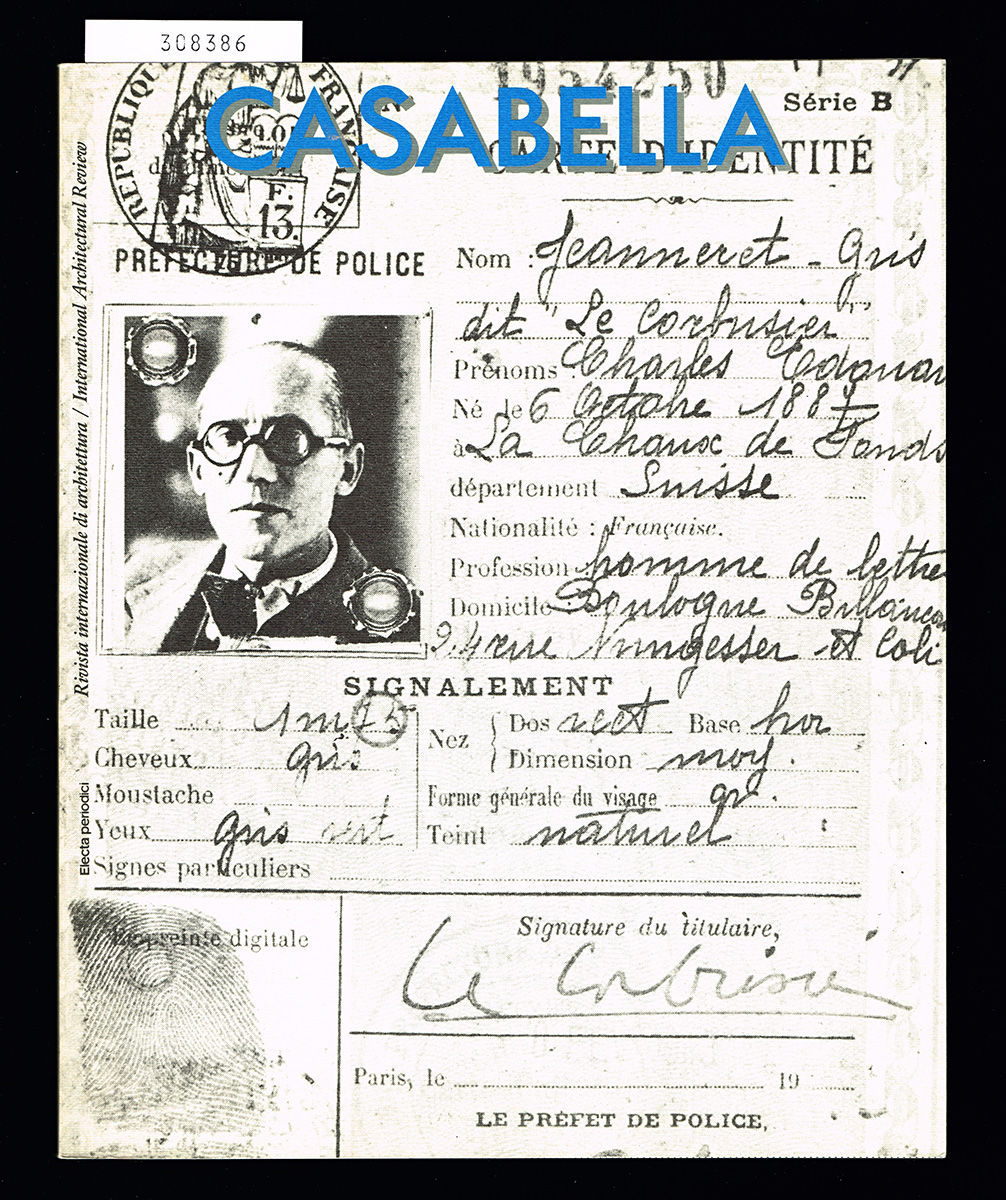 308386
1954250
Série B
CASABELLA
CARTE D'IDENTITÉ
RÉPUBLIQUE FRANÇAISE
F.
13.
PRÉFECTURE DE POLICE
Rivista internazionale di architettura / International Architectural Review
Electa periodici
Nom : Jeanneret - Gris
dit "Le Corbusier"
Prénoms : Charles Edouar
Né le 6 Octobre 1887
à La Chaux de Fonds
département Suisse
Nationalité : Française.
Profession homme de lettre
Domicile Boulogne Billancou
24 rue Nungesser et Coli
SIGNALEMENT
Taille 1m75
Cheveux gris
Moustache
Yeux gris vert
Signes particuliers
Nez
Dos rect Base hor
Dimension moy.
Forme générale du visage ov.
Teint naturel
Empreinte digitale
Signature du titulaire,
Le Corbusier
Paris, le 19
LE PRÉFET DE POLICE,